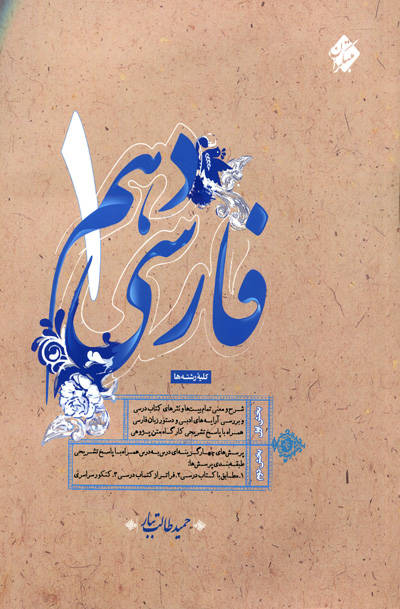 مبتکران
دهم
۱
فارسی
کلیهٔ رشته‌ها
بخش اول
شرح و معنی تمام بیت‌ها و نثرهای کتاب درسی
و بررسی آرایه‌های ادبی و دستور زبان فارسی
همراه با پاسخ تشریحی کارگاه متن‌پژوهی
بخش دوم
پرسش‌های چهارگزینه‌ای درس به درس همراه با پاسخ تشریحی
طبقه‌بندی پرسش‌ها:
۱. مطابق با کتاب درسی ۲. فراتر از کتاب درسی ۳. کنکور سراسری
حمید طالب تبار